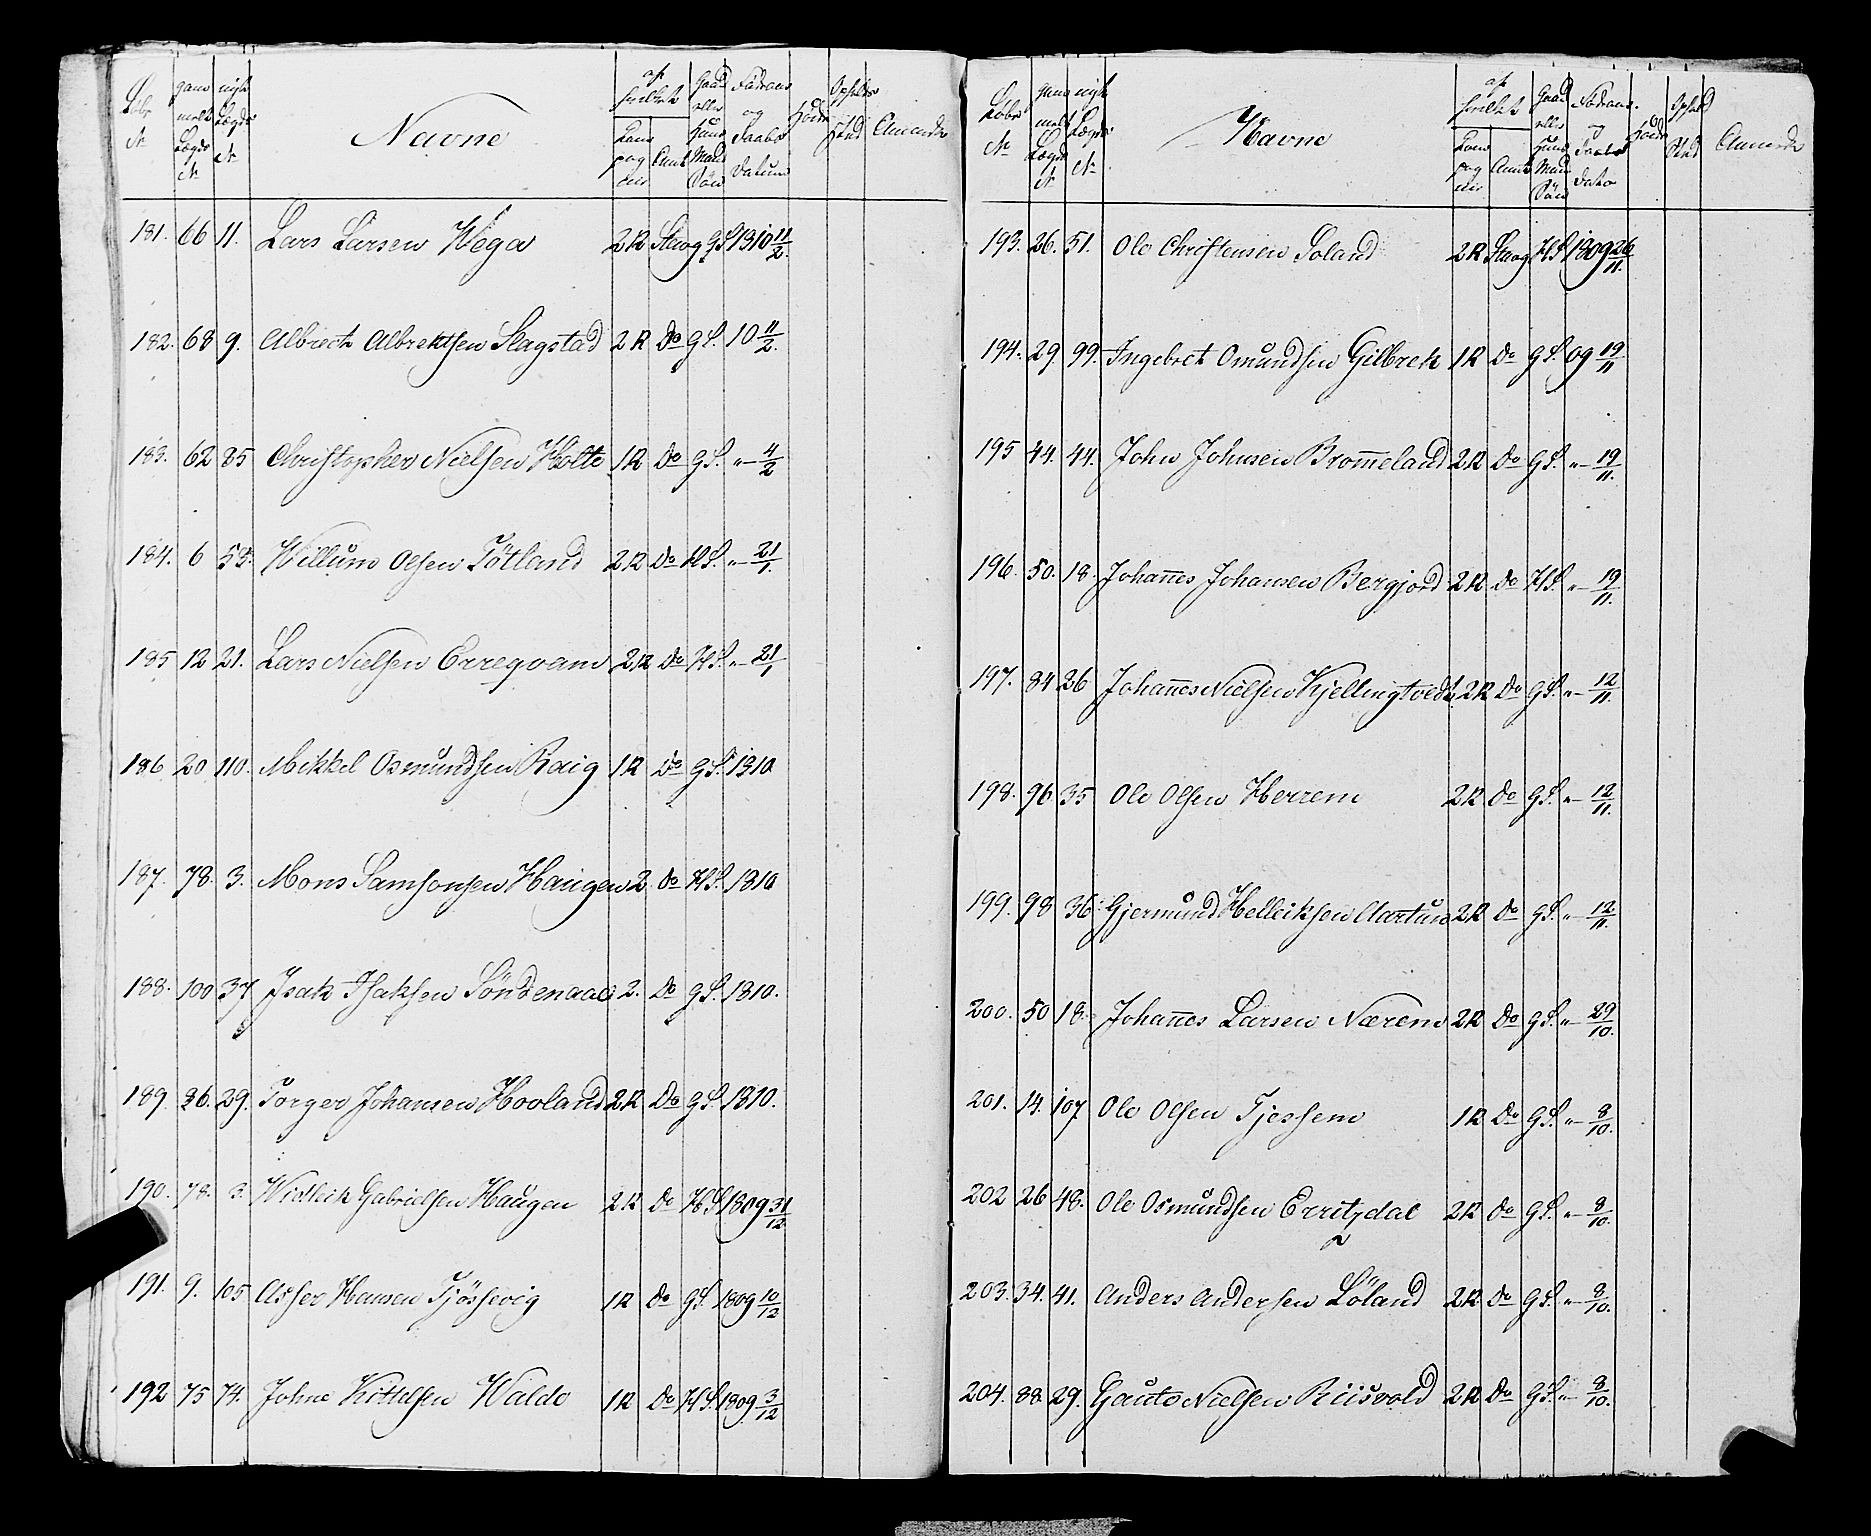 Løbe № | gammelt Lægds № | nyt Lægds № | Navne | af hvilket Compagnie | Amt | Gaard eller Huus Mands Søn | Fødsels og Daabs Datum | Høide | Opholds Sted
181. 66 11. Lars Larsen Wega 2 R Stavg G S. 1810 11/2.
182. 68 9. Albrect Albrektsen Slagstad 2 R Do G S. 10 11/2.
183. 62 85 Christopher Nielsen Holte 1 R Do G S. „– 4/2
184. 6 53. Willum Olsen Tötland 2 R Do H S. „– 21/1.
185 12 21. Lars Nielsen Erreqvam 2 R Do H S. „– 21/1
186 20 110. Mikkel Osmundsen Raig 1 R Do G S. 1810
187. 78. 3. Mons Samsonsen Haugen 2. Do H S. 1810
188. 100 37 Isak Isaksen Söndenaae 2. Do G S. 1810.
189. 36. 29. Torger Johansen Hooland 2 R Do G S. 1810.
190. 78. 3. Widleik Gabrielsen Haugen 2 R Do H S. 1809 31/12
191. 9. 105 Asser Hansen Tjössevig 1 R Do G S. 1809 10/12
192 75 74. Johne Kittelsen Walde 1 R Do H S. 1809 3/12
Løbe № | gammelt Lægds № | nyt Lægds № | Navne | af hvilket Compagnie | Amt | Gaard eller Huus Mands Søn | Fødsels og Daabs Dato | Høide | Ophold Sted
193. 26. 51. Ole Christensen Soland 2 R Stavg H S. 1809 26/11.
194. 29. 99. Ingebret Omundsen Gilbrek 1 R Do G S. 09 19/11
195 44. 44. John Johnsen Bromeland 2 R Do G S. „– 19/11.
196. 50. 18. Johanes Johansen Bergjord 2 R Do H S. „– 19/11.
197. 84 26 Johanes Nielsen Kjellingtvedt 2 R Do G S. „– 12/11.
198. 96. 35 Ole Olsen Herrem 2 R Do G S. „– 12/11.
199. 98 36. Gjermund Helleiksen Aartun 2 R Do G S. „– 12/11.
200. 50 18. Johanes Larsen Nærem 2 R Do G S. „– 29/10.
201. 14. 107 Ole Olsen Tjessem 1 R Do G S. „– 8/10.
202 26 48. Ole Osmundsen Erritzdal 2 R Do G S. „– 8/10.
203. 34. 41. Anders Andersen Löland 2 R Do G S. „– 8/10.
204. 88. 29. Gaute Nielsen Riisvold 2 R Do G S. „– 8/10.